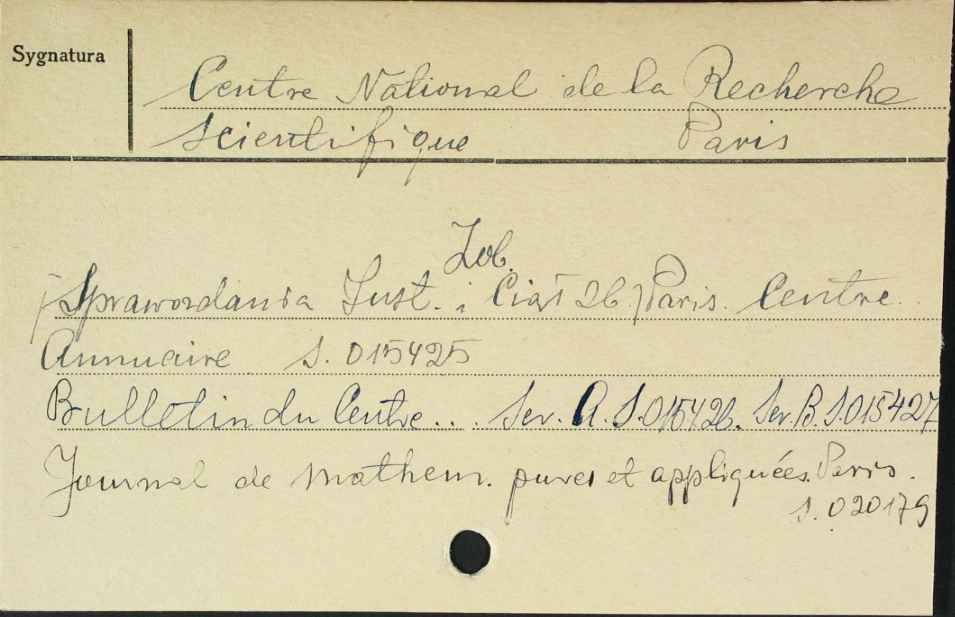 Sygnatura
Centre National de la Recherche
Scientifique Paris
Zob.
/Sprawozdania Inst. i Ciał 26/Paris. Centre..
Annuaire S. 015425
Bulletin du Centre... Ser. A. S.015426. Ser. B. S.015427
Journal de mathem. pures et appliquées. Paris.
S. 020179